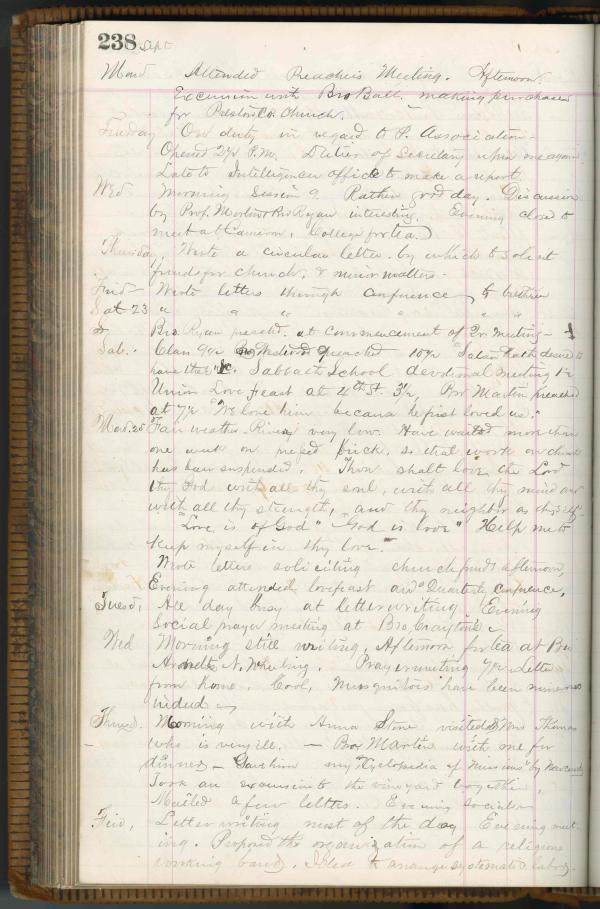 238 Sept
Mond. Attended Preachers Meeting. Afternoon.
Excursion with Bro Ball. making purchases
for Preston Co. Church.
Tuesday On duty in regard to P. Association -
Opened 2½ P.M. Duties of Secretary upon me again.
Late to Intelligencer office to make a report.
Wed Morning session 9. Rather good day. Discussion
by Prof. & Bro Ryan interesting. Evening closed to
meet at Cameron, College for tea
Thursday, Wrote a circular letter. by which to solicit
funds for church, & minor matters.
Frid Wrote letters through conference to brethren
Sat 23 " " " " " "
& Bro. Ryan preached. at commencement of Qr. Meeting -
Sab. Class 9½ Bro preached 10½ "Satan hath desired to
have thee" &c. Sabbath School devotional meeting 1½
Union Love feast at 4th St. 3½, Bro Martin preached
at 7½ "We love him because he first loved us."
Mon. 25 Fair weather River very low. Have waited more than
one week on pressed brick. so that work on church
has been suspended. "Thou shalt love the Lord
thy God with all thy soul, with all thy mind and
with all thy strength, and thy neighbor as thyself."
"Love is of God" "God is love" Help me to
keep myself in thy love.
Wrote letters soliciting church funds afternoon,
Evening attended lovefeast and Quarterly conference,
Tuesd, All day busy at letter writing Evening
Social prayer meeting at Bro.
Wed Morning still writing, Afternoon for tea at Bro
N. Wheeling. Prayermeeting 7½ Letter
from home. Cool, Musquitoes have been numerous
indeed
Thurs. Morning with Anna Stone visited Mrs Thomas
who is very ill. - Bro Martin with me for
dinner - Gave him my "Cyclopedia of Missions" by Newcomb
Took an excursion to the vineyard together,
Mailed a few letters. Evening social
Frid, Letter writing most of the day Evening meet-
ing. Proposed the organization of a religious
working band. to arrange systematic labor.